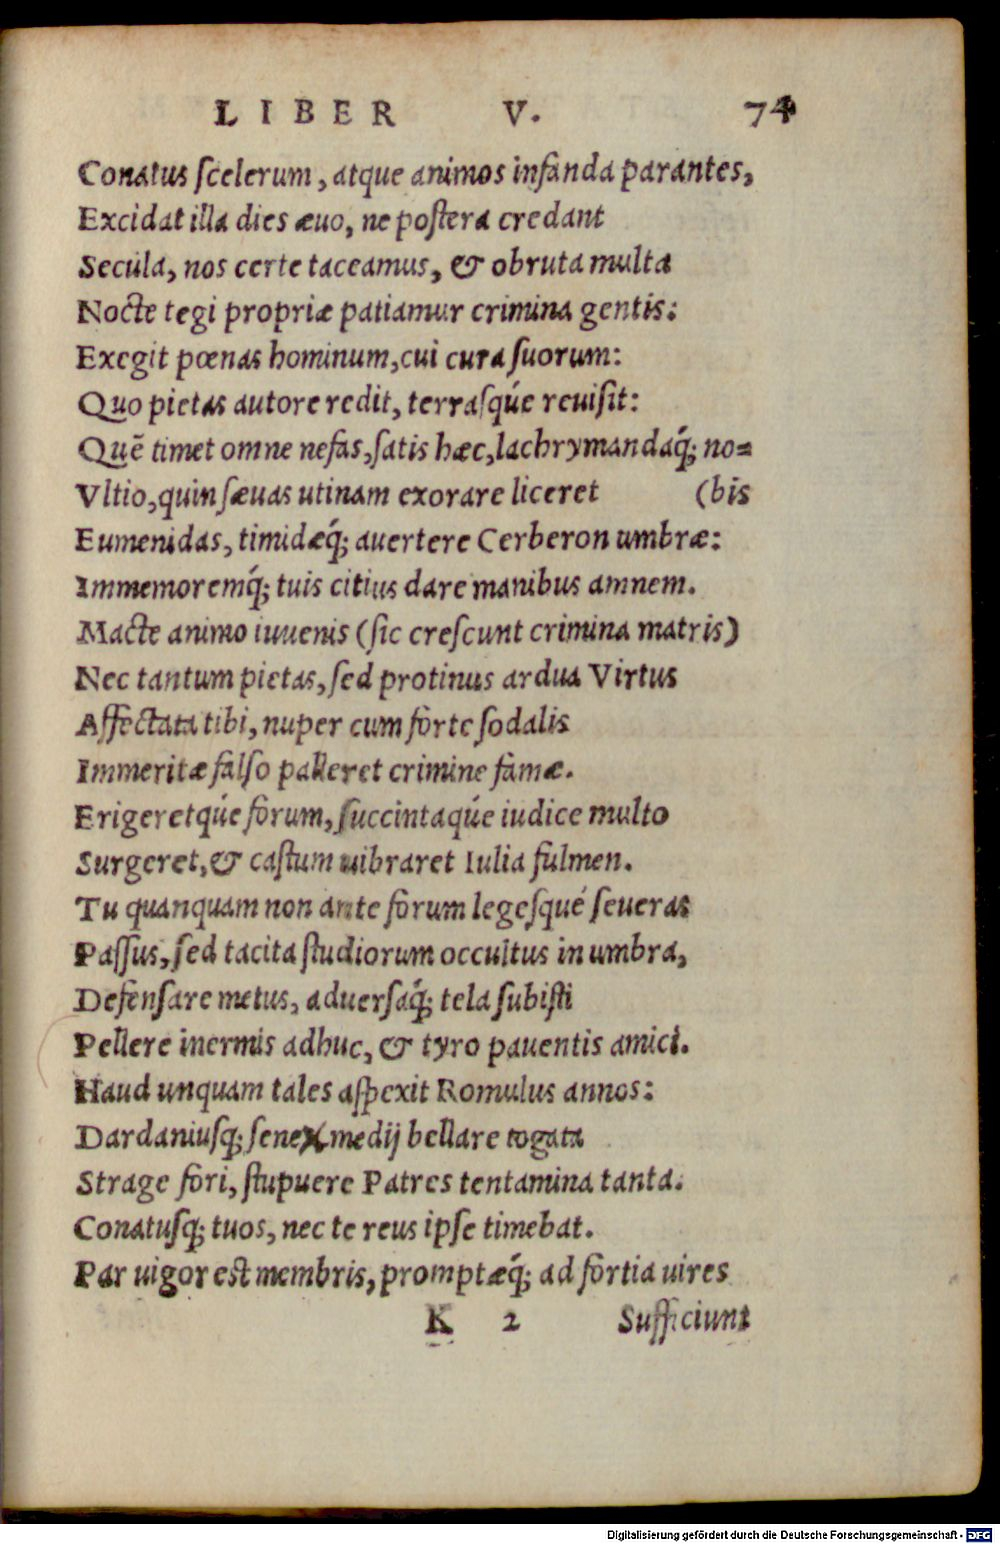 LIBER V. 74
Conatus ſcelerum, atque animos infanda parantes,
Excidat illa dies æuo, ne poſtera credant
Secula, nos certe taceamus, & obruta multa
Nocte tegi propriæ patiamur crimina gentis:
Exegit pœnas hominum, cui cura ſuorum:
Quo pietas autore redit, terraſq́ue reuiſit:
Quẽ timet omne nefas, ſatis hæc, lachrymandaq́; no=
Vltio, quin ſæuas utinam exorare liceret (bis
Eumenidas, timidæq́; auertere Cerberon umbræ:
Immemoremq́; tuis citius dare manibus amnem.
Macte animo iuuenis (ſic creſcunt crimina matris)
Nec tantum pietas, ſed protinus ardua Virtus
Affectata tibi, nuper cum forte ſodalis
Immeritæ falſo palleret crimine famæ.
Erigeretq́ue forum, ſuccintaq́ue iudice multo
Surgeret, & caſtum uibraret Iulia fulmen.
Tu quanquam non ante forum legeſqué ſeueras
Paſſus, ſed tacita ſtudiorum occultus in umbra,
Defenſare metus, aduerſaq́; tela ſubiſti
Pellere inermis adhuc, & tyro pauentis amici.
Haud unquam tales aſpexit Romulus annos:
Dardaniuſq; ſenex, medij bellare togata
Strage fori, ſtupuere Patres tentamina tanta.
Conatuſq; tuos, nec te reus ipſe timebat.
Par uigor est membris, promptæq́; ad fortia uires
K 2 Sufficiunt
Digitalisierung gefördert durch die Deutsche Forschungsgemeinschaft - DFG